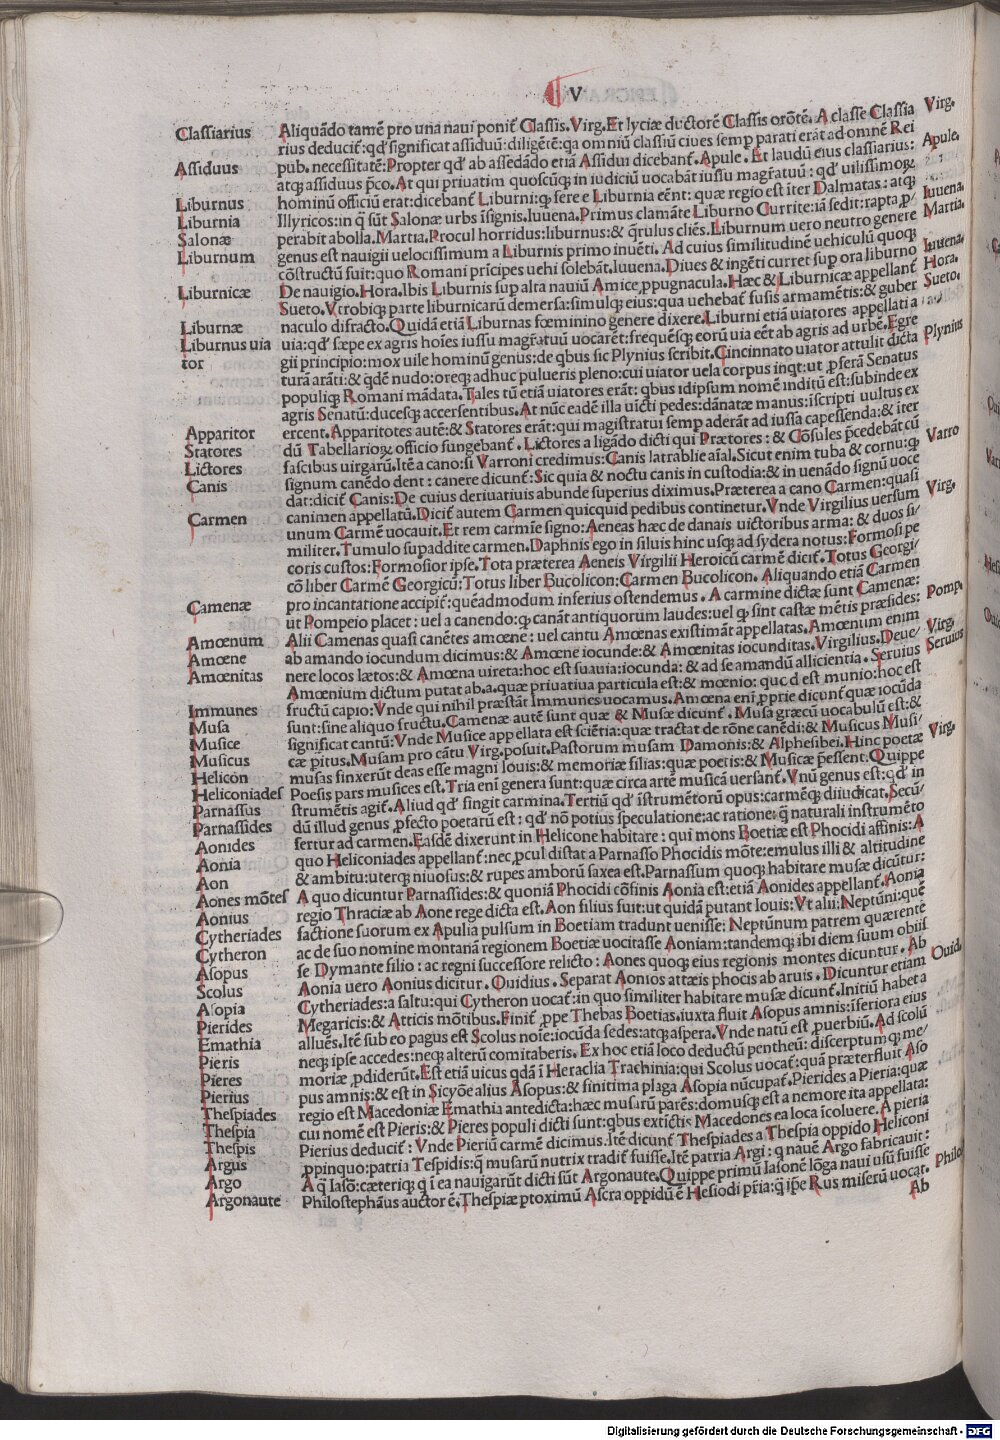 V
Classiarius Aliquãdo tamẽ pro una naui poniť Classis. Virg. Et lyciæ ductorẽ Classis orõtẽ. A classe Classia Virg.
rius deduciť: qď significat assiduũ: diligẽtẽ: qa omniũ classiũ ciues semp parati erãt ad omnẽ Rei
Assiduus pub. necessitatẽ: Propter qď ab assedãdo etiã Assidui dicebanť. Apule. Et laudũ eius classiarius: Apule.
atqꝫ assiduus p̃co. At qui priuatim quoscũqꝫ in iudiciũ uocabãt iussu magr̃atuũ: qď uilissimoꝝ
Liburnus hominũ officiũ erat: dicebanť Liburni: qꝫ fere e Liburnia eẽnt: quæ regio est iter Dalmatas: atqꝫ
Liburnia Illyricos: in q̃ sũt Salonæ urbs ĩsignis. Iuuena. Primus clamãte Liburno Currite: iã sedit: rapta ꝓ/ Iuuena.
Salonæ perabit abolla. Martia. Procul horridus: liburnus: & q̃rulus cliẽs. Liburnum uero neutro genere Martia.
Liburnum genus est nauigii uelocissimum a Liburnis primo inuẽti. Ad cuius similitudinẽ uehiculũ quoqꝫ
cõstructũ fuit: quo Romani prĩcipes uehi solebãt. Iuuena. Diues & ingẽti curret sup ora liburno Iuuena.
Liburnicæ De nauigio. Hora. Ibis Liburnis sup alta nauiũ Amice ꝓpugnacula. Hæc & Liburnicæ appellanť Hora.
Sueto. Vtrobiqꝫ parte liburnicarũ demersa: simulqꝫ eius: qua uehebať fusis armamẽtis: & guber Sueto.
Liburnæ naculo difracto. Quidã etiã Liburnas fœminino genere dixere. Liburni etiã uiatores appellati a
Liburnus uia uia: qď sæpe ex agris hoĩes iussu magr̃atuũ uocarẽt: frequẽsqꝫ eorũ uia eẽt ab agris ad urbẽ. Egre
tor gii principio: mox uile hominũ genus: de qbus sic Plynius scribit. Cincinnato uiator attulit dicta Plynius
turã arãti: & qdẽ nudo: oreqꝫ adhuc pulueris pleno: cui uiator uela corpus inqt: ut ꝓferã Senatus
populiqꝫ Romani mãdata. Tales tũ etiã uiatores erãt: qbus idipsum nomẽ inditũ est: subinde ex
agris Senatũ: ducesqꝫ accersentibus. At nũc eadẽ illa uĩcti pedes: dãnatæ manus: ĩscripti uultus ex
Apparitor ercent. Apparitotes autẽ: & Statores erãt: qui magistratui semp aderãt ad iussa capessenda: & iter
Statores dũ Tabellarioꝝ officio fungebanť. Lictores a ligãdo dicti qui Prætores: & Cõsules p̃cedebãt cũ
Lictores fascibus uirgarũ. Itẽ a cano: si Varroni credimus: Canis latrablie aĩal. Sicut enim tuba & cornu: qꝫ Varro
Canis signum canẽdo dent: canere dicunť: Sic quia & noctu canis in custodia: & in uenãdo signũ uoce
dat: diciť Canis: De cuius deriuatiuis abunde superius diximus. Præterea a cano Carmen: quasi
Carmen canimen appellatũ. Diciť autem Carmen quicquid pedibus continetur. Vnde Virgilius uersum Virg.
unum Carmẽ uocauit. Et rem carmĩe signo: Aeneas hæc de danais uictoribus arma: & duos si/
militer. Tumulo supaddite carmen. Daphnis ego in siluis hinc usqꝫ ad sydera notus: Formosi pe
coris custos: Formosior ipse. Tota præterea Aeneis Virgilii Heroicũ carmẽ diciť. Totus Georgi/
cõ liber Carmẽ Georgicũ: Totus liber Bucolicon: Carmen Bucolicon. Aliquando etiã Carmen
Camenæ pro incantatione accipiť: quẽadmodum inferius ostendemus. A carmine dictæ sunt Camenæ:
ut Pompeio placet: uel a canendo: qꝫ canãt antiquorum laudes: uel qꝫ sint castæ mẽtis præsides: Pomp.
Amœnum Alii Camenas quasi canẽtes amœne: uel cantu Amœnas existimãt appellatas. Amœnum enim
Amœne ab amando iocundum dicimus: & Amœne iocunde: & Amœnitas iocunditas. Virgilius. Deue/ Virg.
Amœnitas nere locos lætos: & Amœna uireta: hoc est suauia: iocunda: & ad se amandũ allicientia. Seruius Seruius
Amœnium dictum putat ab .a. quæ priuatiua particula est: & mœnio: quc d est munio: hoc est
Immunes fructũ capio: Vnde qui nihil præstãt Immunes uocamus. Amœna enĩ ꝓprie dicunť quæ iocũda
Musa sunt: sine aliquo fructu. Camenæ autẽ sunt quæ & Musæ dicunť. Musa græcũ uocabulũ est: &
Musice significat cantũ: Vnde Musice appellata est sciẽtia: quæ tractat de rõne canẽdi: & Musicus Musi/
Musicus cæ pitus. Musam pro cãtu Virg. posuit. Pastorum musam Damonis: & Alphesibei. Hinc poetæ Virg.
Helicon musas finxerũt deas esse magni Iouis: & memoriæ filias: quæ poetis: & Musicæ p̃essent. Quippe
Heliconiades Poesis pars musices est. Tria enĩ genera sunt: quæ circa artẽ musicã uersanť. Vnũ genus est: qď in
Parnassus strumẽtis agiť. Aliud qď fingit carmina. Tertiũ qď ĩstrumẽtorũ opus: carmẽqꝫ diiudicat. Secũ/
Parnassides dũ illud genus ꝓfecto poetarũ est: qď nõ potius speculatione: ac ratione: q̃ naturali instrumẽto
Aonides fertur ad carmen. Easdẽ dixerunt in Helicone habitare: qui mons Boetiæ est Phocidi affinis: A
Aonia quo Heliconiades appellanť: nec ꝓcul distat a Parnasso Phocidis mõte: emulus illi & altitudine
Aon & ambitu: uterqꝫ niuosus: & rupes amborũ saxea est. Parnassum quoqꝫ habitare musæ dicũtur:
Aones mõtes A quo dicuntur Parnassides: & quoniã Phocidi cõfinis Aonia est: etiã Aonides appellanť. Aonia
Aonius regio Thraciæ ab Aone rege dicta est. Aon filius fuit: ut quidã putant Iouis: Vt alii: Neptũni: quẽ
Cytheriades factione suorum ex Apulia pulsum in Boetiam tradunt uenisse: Neptũnum patrem quærente
Cytheron ac de suo nomine montanã regionem Boetiæ uocitasse Aoniam: tandemqꝫ ibi diem suum obiisse
Asopus se Dymante filio: ac regni successore relicto: Aones quoqꝫ eius regionis montes dicuntur. Ab
Scolus Aonia uero Aonius dicitur. Ouidius. Separat Aonios attæis phocis ab aruis. Dicuntur etiam Ouid.
Asopia Cytheriades: a saltu: qui Cytheron uocať: in quo similiter habitare musæ dicunť. Initiũ habeta
Pierides Megaricis: & Atticis mõtibus. Finiť ꝓpe Thebas Boetias. iuxta fluit Asopus amnis: ĩferiora eius
Emathia alluẽs. Itẽ sub eo pagus est Scolus noĩe: iocũda sedes: atqꝫ aspera. Vnde natũ est ꝓuerbiũ. Ad scolũ
Pieris neqꝫ ipse accedes: neqꝫ alterũ comitaberis. Ex hoc etiã loco deductũ pentheũ: discerptumqꝫ me/
Pieres moriæ ꝓdiderũt. Est etiã uicus qdã ĩ Heraclia Trachinia: qui Scolus uocať: quã præterfluit Aso
Pierius pus amnis: & est in Sicyõe alius Asopus: & finitima plaga Asopia nũcupať. Pierides a Pieria: quæ
Thespiades regio est Macedoniæ Emathia antedicta: hæc musarũ parẽs: domusqꝫ est a nemore ita appellata:
Thespia cui nomẽ est Pieris: & Pieres populi dicti sunt: qbus extĩctis Macedones ea loca ĩcoluere. A pieria
Thespis Pierius deduciť: Vnde Pieriũ carmẽ dicimus. Itẽ dicunť Thespiades a Thespia oppido Heliconi
Argus ꝓpinquo: patria Tespidis: q̃ musarũ nutrix tradiť fuisse. Itẽ patria Argi: q̃ nauẽ Argo fabricauit:
Argo A q̃ Iasõ: cæteriqꝫ q̃ ĩ ea nauigarũt dicti sũt Argonaute. Quippe primũ Iasonẽ lõga naui usũ fuisse
Argonaute Philostephãus auctor ẽ. Thespiæ ptoximũ Ascra oppidũ ẽ Hesiodi pr̃ia: q̃ ip̃e Rus miserũ uocat. Philo
Ab
Digitalisierung gefördert durch die Deutsche Forschungsgemeinschaft - DFG